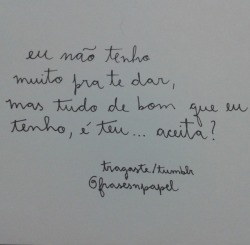 eu não tenho
muito pra te dar,
mas tudo de bom que eu
tenho, é teu... aceita?
tragaste/tumblr
@frasesnpapel